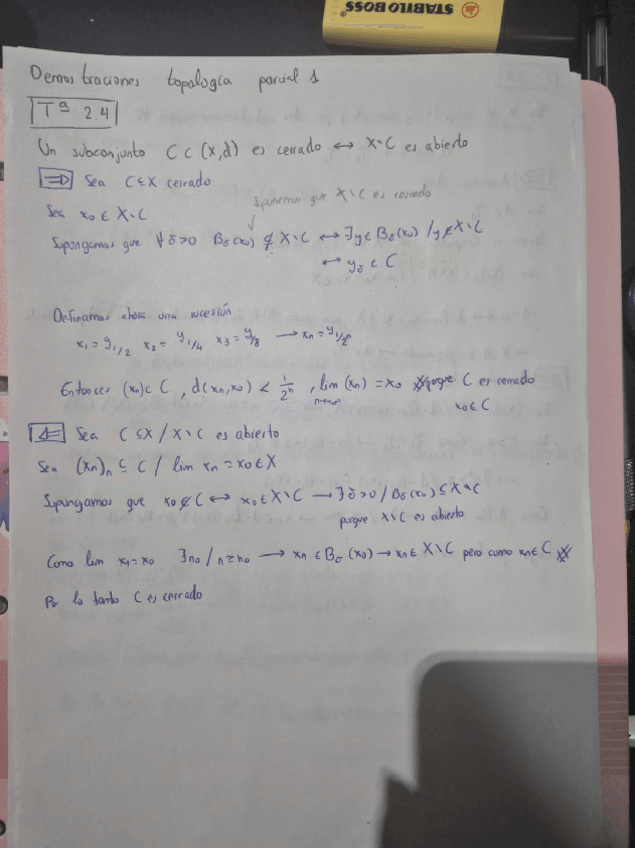 STABILO BOSS®
Demostraciones topología parcial 1
Tª 2.4
Un subconjunto C ⊂ (X,d) es cerrado ↔ X∖C es abierto
⇒ Sea C ⊆ X cerrado
Supramos que X∖C es cerrado
Sea x₀ ∈ X∖C
Supongamos que ∀δ>0 Bδ(x₀) ⊄ X∖C ↔ ∃y ∈ Bδ(x₀) / y ∉ X∖C
↔ yδ ∈ C
Definamos ahora una sucesión
x₁ = y₁/₂ x₂ = y₁/₄ x₃ = y/₈ → xₙ = y₁/₂ⁿ
Entonces (xₙ) ⊂ C , d(xₙ,x₀) < 1/2ⁿ , lim (xₙ) = x₀ porque C es cerrado
n→∞ x₀ ∈ C
⇐ Sea C ⊆ X / X∖C es abierto
Sea (xₙ)ₙ ⊆ C / lim xₙ = x₀ ∈ X
Supongamos que x₀ ∉ C ↔ x₀ ∈ X∖C → ∃δ>0 / Bδ(x₀) ⊆ X∖C
porque X∖C es abierto
Como lim xₙ = x₀ ∃n₀ / n ≥ n₀ → xₙ ∈ Bδ(x₀) → xₙ ∈ X∖C pero como xₙ ∈ C
Por lo tanto C es cerrado